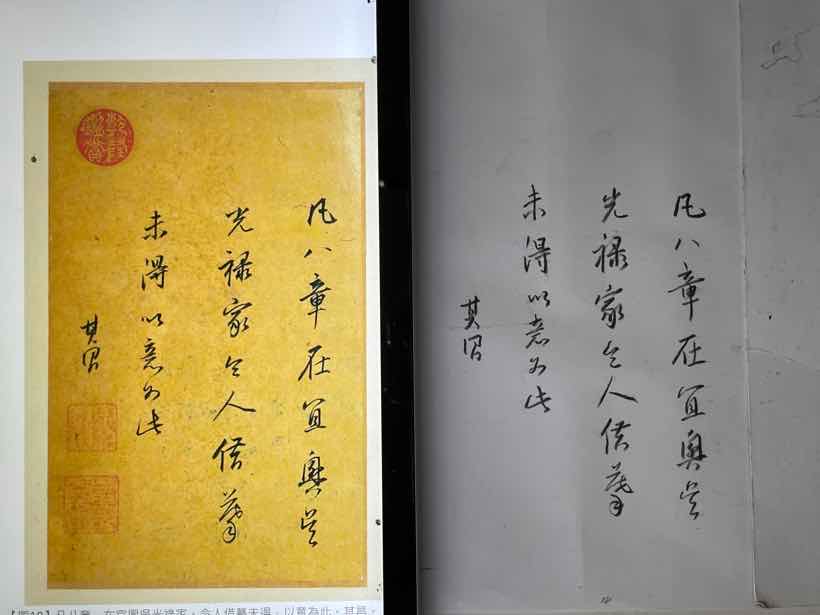 凡八章在宜興吳
光祿家令人借摹
未得以意为此
其昌
乾隆鑑賞
凡八章，在宜興吳光祿家，令人借摹未得，以意為此。其昌。
凡八章在宜興吳
光祿家令人借摹
未得以意为此
其昌